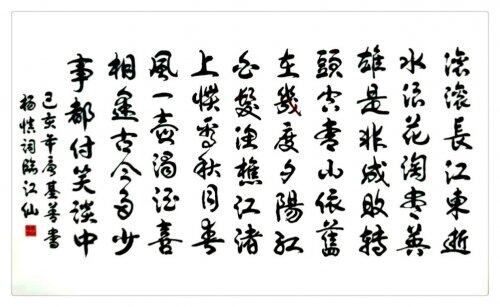 滾滾長江東逝
水浪花淘盡英
雄是非成敗轉
頭空青山依舊
在幾度夕陽紅
白髮漁樵江渚
上慣看秋月春
風一壺濁酒喜
相逢古今多少
事都付笑談中
己亥年 基善書
楊慎詞臨江仙